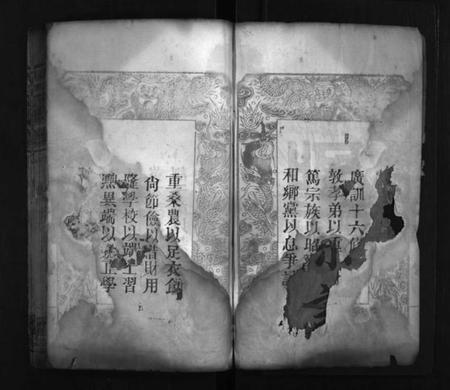 廣訓十六
敦孝弟以
篤宗族以昭
和鄉黨以息爭
重桑農以足衣食
尚節儉以惜財用
隆學校以端士習
黜異端以崇正學